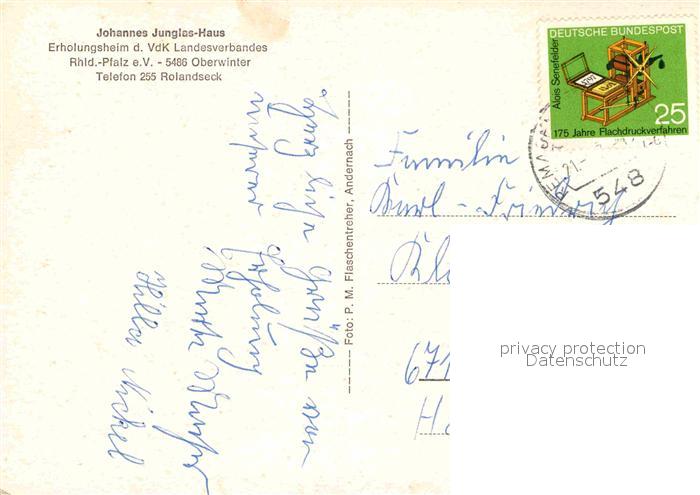 Johannes Junglas-Haus
Erholungsheim d. VdK Landesverbandes
Rhld.-Pfalz e.V. - 5486 Oberwinter
Telefon 255 Rolandseck
DEUTSCHE BUNDESPOST
Alois Senefelder
25
175 Jahre Flachdruckverfahren
548
Ganz liebe Grüße von
unserer Erholung
Hilla Nickel
Foto: P. M. Flaschentreher, Andernach
Familie
Karl-
Kl
671
privacy protection
Datenschutz